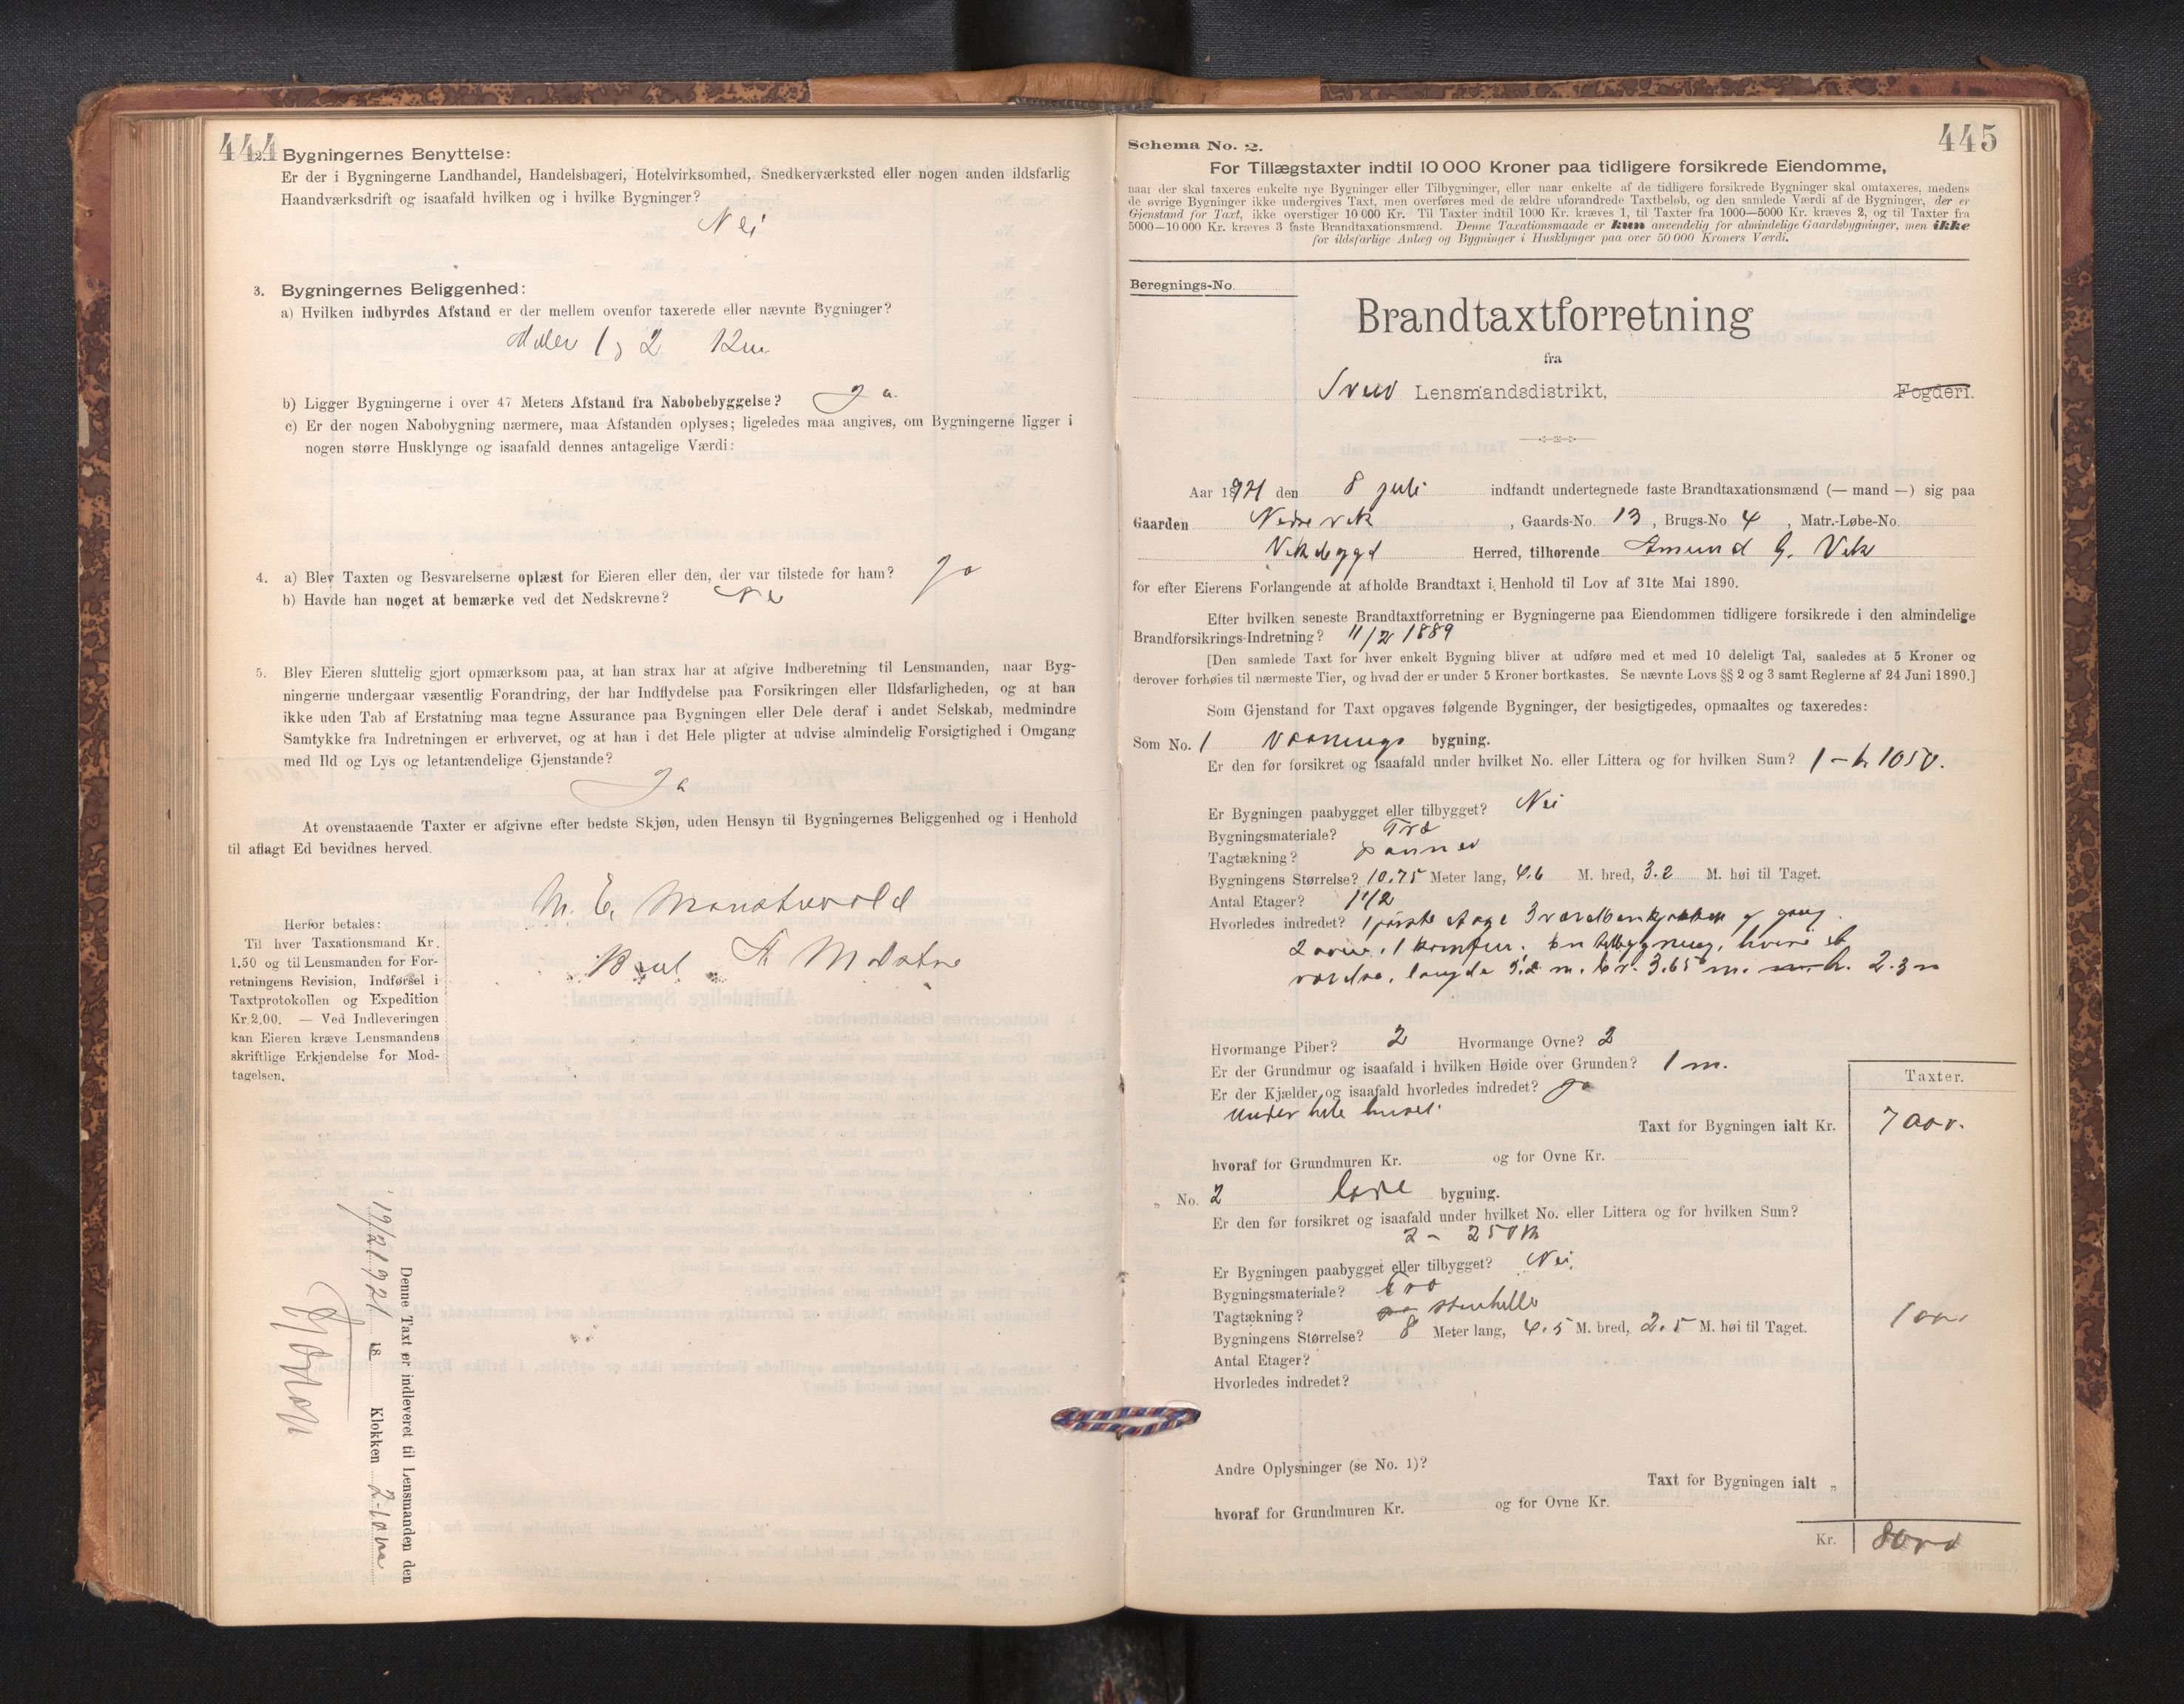 444
2. Bygningernes Benyttelse:
Er der i Bygningerne Landhandel, Handelsbageri, Hotelvirksomhed, Snedkerværksted eller nogen anden ildsfarlig
Haandværksdrift og isaafald hvilken og i hvilke Bygninger?
Nei
3. Bygningernes Beliggenhed:
a) Hvilken indbyrdes Afstand er der mellem ovenfor taxerede eller nævnte Bygninger?
1 og 2 12 m
b) Ligger Bygningerne i over 47 Meters Afstand fra Nabobebyggelse? Ja.
c) Er der nogen Nabobygning nærmere, maa Afstanden oplyses; ligeledes maa angives, om Bygningerne ligger i
nogen større Husklynge og isaafald dennes antagelige Værdi:
4. a) Blev Taxten og Besvarelserne oplæst for Eieren eller den, der var tilstede for ham? Ja
b) Havde han noget at bemærke ved det Nedskrevne? Nei
5. Blev Eieren sluttelig gjort opmærksom paa, at han strax har at afgive Indberetning til Lensmanden, naar Byg-
ningerne undergaar væsentlig Forandring, der har Indflydelse paa Forsikringen eller Ildsfarligheden, og at han
ikke uden Tab af Erstatning maa tegne Assurance paa Bygningen eller Dele deraf i andet Selskab, medmindre
Samtykke fra Indretningen er erhvervet, og at han i det Hele pligter at udvise almindelig Forsigtighed i Omgang
med Ild og Lys og letantændelige Gjenstande?
Ja
At ovenstaaende Taxter er afgivne efter bedste Skjøn, uden Hensyn til Bygningernes Beliggenhed og i Henhold
til aflagt Ed bevidnes herved.
M. E.
Herfor betales:
Til hver Taxationsmand Kr.
1.50 og til Lensmanden for For-
retningens Revision, Indførsel i
Taxtprotokollen og Expedition
Kr. 2.00. — Ved Indleveringen
kan Eieren kræve Lensmandens
skriftlige Erkjendelse for Mod-
tagelsen.
Denne Taxt er indleveret til Lensmanden den
19/2 1921 18 Klokken 2
445
Schema No. 2.
For Tillægstaxter indtil 10 000 Kroner paa tidligere forsikrede Eiendomme,
naar der skal taxeres enkelte nye Bygninger eller Tilbygninger, eller naar enkelte af de tidligere forsikrede Bygninger skal omtaxeres, medens
de øvrige Bygninger ikke undergives Taxt, men overføres med de ældre uforandrede Taxtbeløb, og den samlede Værdi af de Bygninger, der er
Gjenstand for Taxt, ikke overstiger 10 000 Kr. Til Taxter indtil 1000 Kr. kræves 1, til Taxter fra 1000—5000 Kr. kræves 2, og til Taxter fra
5000—10 000 Kr. kræves 3 faste Brandtaxationsmænd. Denne Taxationsmaade er kun anvendelig for almindelige Gaardsbygninger, men ikke
for ildsfarlige Anlæg og Bygninger i Husklynger paa over 50 000 Kroners Værdi.
Beregnings-No.
Brandtaxtforretning
fra
Sveio Lensmandsdistrikt, Fogderi.
Aar 1921 den 8 juli indfandt undertegnede faste Brandtaxationsmænd (— mand —) sig paa
Gaarden Nedre vik, Gaards-No. 13, Brugs-No. 4, Matr.-Løbe-No.
Vikebygd Herred, tilhørende Amund G. Vik
for efter Eierens Forlangende at afholde Brandtaxt i Henhold til Lov af 31te Mai 1890.
Efter hvilken seneste Brandtaxtforretning er Bygningerne paa Eiendommen tidligere forsikrede i den almindelige
Brandforsikrings-Indretning? 11/2 1889
[Den samlede Taxt for hver enkelt Bygning bliver at udføre med et med 10 deleligt Tal, saaledes at 5 Kroner og
derover forhøies til nærmeste Tier, og hvad der er under 5 Kroner bortkastes. Se nævnte Lovs §§ 2 og 3 samt Reglerne af 24 Juni 1890.]
Som Gjenstand for Taxt opgaves følgende Bygninger, der besigtigedes, opmaaltes og taxeredes:
Som No. 1 Vaanings bygning.
Er den før forsikret og isaafald under hvilket No. eller Littera og for hvilken Sum? 1 – kr 1050.
Er Bygningen paabygget eller tilbygget? Nei
Bygningsmateriale? Træ
Tagtækning? panner
Bygningens Størrelse? 10.75 Meter lang, 4.6 M. bred, 3.2 M. høi til Taget.
Antal Etager? 1 1/2
Hvorledes indredet? 1 første etage 3 værelser kjøkken og gang.
2 ovne. 1 komfur. En tilbygning, hvori et
værelse. længde 5.2 m. br. 3.65 m. h. 2.3 m
Hvormange Piber? 2 Hvormange Ovne? 2
Er der Grundmur og isaafald i hvilken Høide over Grunden? 1 m.
Er der Kjælder og isaafald hvorledes indredet? ja
under hele huset.
Taxter.
Taxt for Bygningen ialt Kr. 7000.
hvoraf for Grundmuren Kr. og for Ovne Kr.
„ No. 2 Løe bygning.
Er den før forsikret og isaafald under hvilket No. eller Littera og for hvilken Sum?
2 – 250 kr
Er Bygningen paabygget eller tilbygget? Nei
Bygningsmateriale? træ
Tagtækning? stenheller
Bygningens Størrelse? 8 Meter lang, 4.5 M. bred, 2.5 M. høi til Taget.
1000
Antal Etager?
Hvorledes indredet?
Andre Oplysninger (se No. 1)?
Taxt for Bygningen ialt „
hvoraf for Grundmuren Kr. og for Ovne Kr.
Kr. 8000